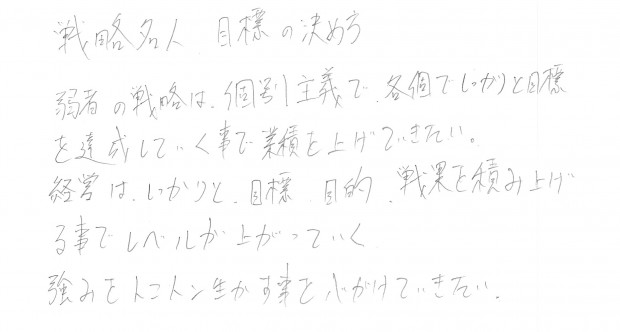 戦略名人 目標の決め方
弱者の戦略は、個別主義で、各個でしっかりと目標
を達成していく事で業績を上げていきたい。
経営は、しっかりと、目標、目的、戦果を積み上げ
る事でレベルが上がっていく
強みをトコトン生かす事を心がけていきたい。